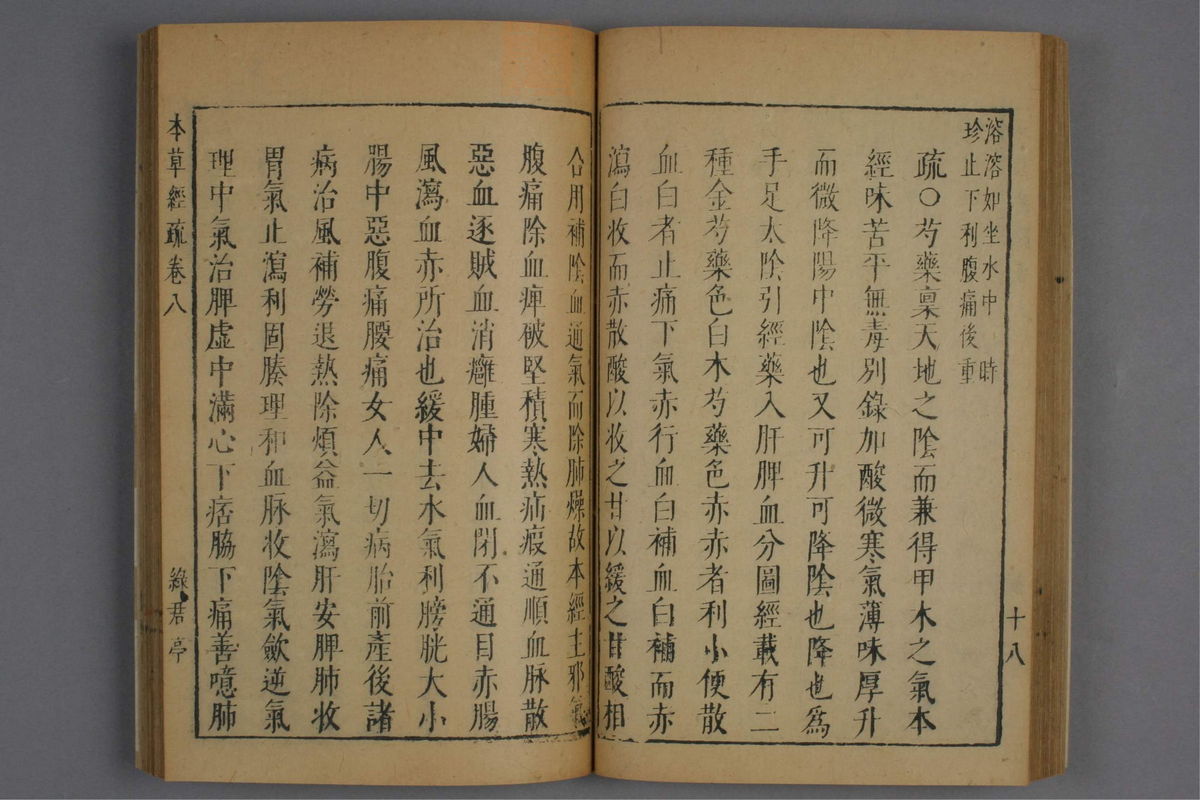 溶溶如坐水中 時
珍止下利腹痛後重
疏○芍藥稟天地之陰而兼得甲木之氣本
經味苦平無毒別錄加酸微寒氣薄味厚升
而微降陽中陰也又可升可降陰也降也為
手足太陰引經藥入肝脾血分圖經載有二
種金芍藥色白木芍藥色赤赤者利小便散
血白者止痛下氣赤行血白補血白補而赤
瀉白收而赤散酸以收之甘以緩之甘酸相
合用補陰血通氣而除肺燥故本經主邪氣
腹痛除血痺破堅積寒熱疝瘕通順血脉散
惡血逐賊血消癰腫婦人血閉不通目赤腸
風瀉血赤所治也緩中去水氣利膀胱大小
腸中惡腹痛腰痛女人一切病胎前產後諸
病治風補勞退熱除煩益氣瀉肝安脾肺收
胃氣止瀉利固腠理和血脉收陰氣歛逆氣
理中氣治脾虛中滿心下痞脇下痛善噫肺
十八
本草經疏卷八
綠君亭